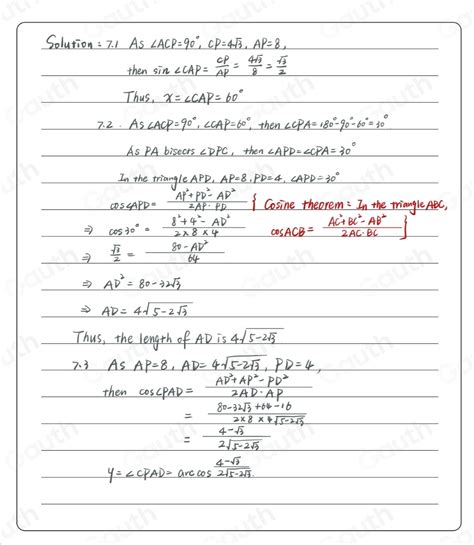 Solution: 7.1 As ∠ACP=90°, CP=4√3, AP=8,
then sin∠CAP = CP/AP = 4√3/8 = √3/2
Thus, x=∠CAP=60°
7.2. As ∠ACP=90°, ∠CAP=60°, then ∠CPA=180°-90°-60°=30°
As PA bisects ∠DPC, then ∠APD=∠CPA=30°
In the triangle APD, AP=8, PD=4, ∠APD=30°
cos∠APD = (AP²+PD²-AD²)/(2AP·PD) { Cosine theorem: In the triangle ABC,
⇒ cos30° = (8²+4²-AD²)/(2×8×4) cosACB = (AC²+BC²-AB²)/(2AC·BC) }
⇒ √3/2 = (80-AD²)/64
⇒ AD² = 80-32√3
⇒ AD = 4√(5-2√3)
Thus, the length of AD is 4√(5-2√3)
7.3 As AP=8, AD=4√(5-2√3), PD=4,
then cos∠PAD = (AD²+AP²-PD²)/(2AD·AP)
= (80-32√3+64-16)/(2×8×4√(5-2√3))
= (4-√3)/(2√(5-2√3))
y=∠PAD=arccos (4-√3)/(2√(5-2√3)).
Gauth